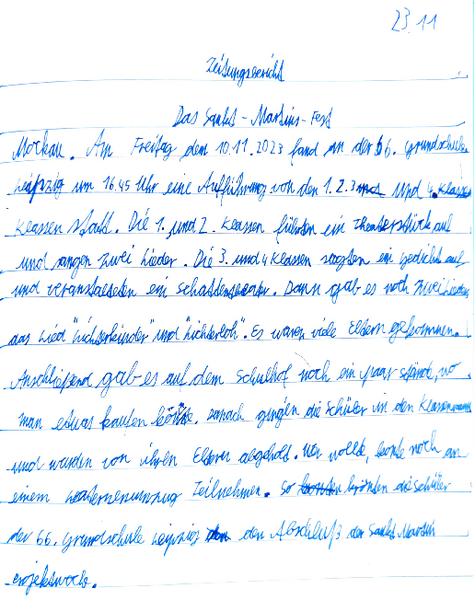 23.11
Zeitungsbericht
Das Sankt-Martins-Fest
Mockau. Am Freitag dem 10.11.2023 fand in der 66. Grundschule
Leipzig um 16.45 Uhr eine Aufführung von den 1. 2. 3 und 4.
Klassen statt. Die 1. und 2. Klassen führten ein Theaterstück auf
und sangen zwei Lieder. Die 3. und 4 Klassen sagten ein Gedicht auf
und veranstalteten ein schattentheater. Dann gab es noch zwei Lieder
das Lied "Lichterkinder" und "Lichterloh". Es waren viele Eltern gekommen.
Anschließend gab es auf dem Schulhof noch ein paar Stände, wo
man etwas kaufen konnte. danach gingen die Schüler in den Klassenraum
und wurden von ihren Eltern abgeholt. Wer wollte, konnte noch an
einem Teilnehmen. So die Schüler
der 66. Grundschule Leipzig den Abschluß der Sankt Martin
projektwoche.